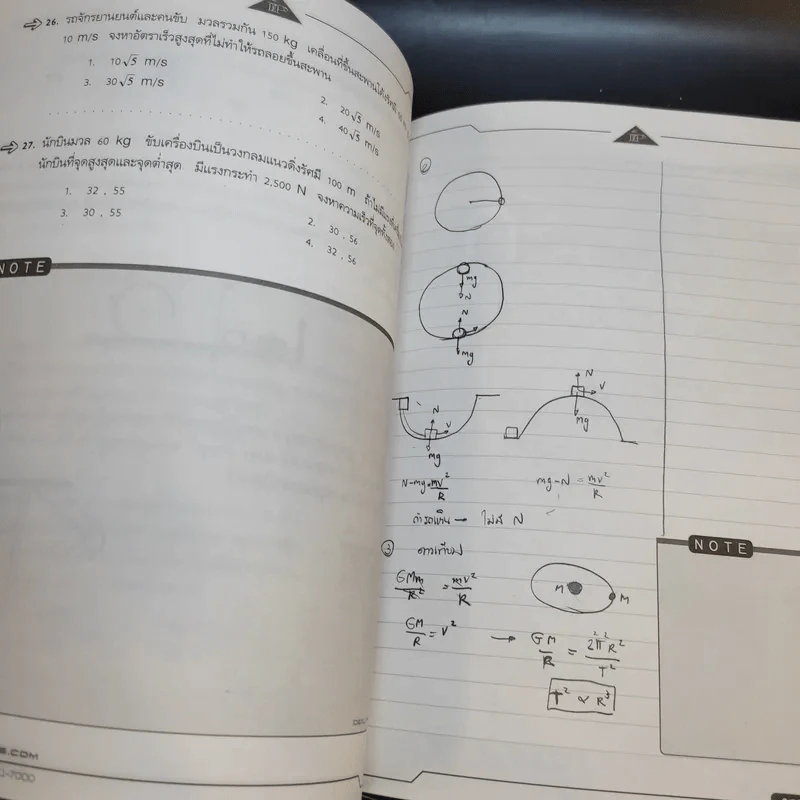 26. รถจักรยานยนต์และคนขับ มวลรวมกัน 150 kg เคลื่อนที่ขึ้นสะพานโค้งรัศมี
10 m/s จงหาอัตราเร็วสูงสุดที่ไม่ทำให้รถลอยขึ้นสะพาน
1. 10√5 m/s
2. 20√5 m/s
3. 30√5 m/s
4. 40√5 m/s
27. นักบินมวล 60 kg ขับเครื่องบินเป็นวงกลมแนวดิ่งรัศมี 100 m ถ้าไม่มี
นักบินที่จุดสูงสุดและจุดต่ำสุด มีแรงกระทำ 2,500 N จงหาความเร็วที่จุดทั้งสอง
1. 32 , 55
2. 30 , 56
3. 30 , 55
4. 32 , 56
NOTE
2
mg
N
N
mg
N
v
mg
N
v
mg
N-mg=mv²/R
mg-N = mv²/R
ถ้ารถเหิน → ไม่มี N
3 ดาวเทียม
GMm/R² = mv²/R
M
M
GM/R = v²
→ GM/R = 2²π²R²/T²
T² ∝ R³
NOTE
S.COM
0-7000